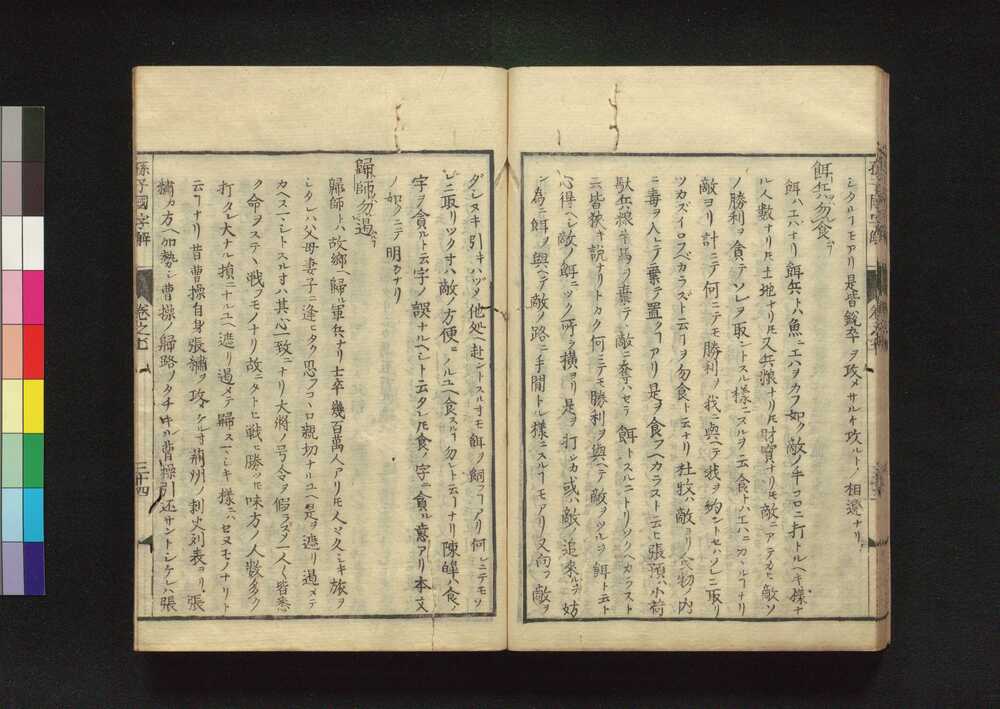 シタルモアリ是皆鋭卒ヲ攻メサルト攻ルトノ相違ナリ
餌兵勿食
餌ハエバナリ餌兵トハ魚ニエバヲカフ如ク敵ノ手コロニ打トルヘキ様ナ
ル人数ナリトモ土地ナリトモ又兵粮ナリトモ財寳ナリトモ敵ニアテカヒ敵ソ
ノ勝利ヲ貪テソレヲ取ントスル様ニスルヲ云食トハエハニカヽルヿナリ
敵ヨリ計ニテ何ニテモ勝利ヲ我ニ與ヘテ我ヲ釣ントセハソレニ取リ
ツカズイロフベカラズト云ヿヲ勿食ト云ナリ杜牧ハ敵ヨリ食物ノ内
ニ毒ヲ入レテ棄テ置クヿアリ是ヲ食フヘカラスト云ヒ張預ハ小荷
駄兵粮牛馬ヲ棄テ敵ニ奪ハセテ餌トスルニトリツクヘカラスト
云皆狹キ説ナリトカク何ニテモ勝利ヲ與ヘテ敵ヲツルヲ餌ト云ト
心得ヘシ敵ノ餌ニツク所ヲ横ヨリ是ヲ打シカ或ハ敵ノ追来ルヲ妨
ン為ニ餌ヲ與ヘテ敵ノ路ニ手間トル様ニスルヿモアリ又向フ敵ヲ
ダシヌキ引キハヅメ他処ヘ赴ントスルオモ餌ヲ飼フヿアリ何レニテモソ
レニ取リツクオハ敵ノ方便ニノルユヘ食スルヿ勿レト云ヿナリ陳皥ハ食ノ
字ヲ貪ルト云字ノ誤ナルヘシト云タレトモ食ノ字ニ貪ル意アリ本文
ノ如クニテ明カナリ
歸師勿遏
歸師トハ故郷ヘ歸ル軍兵ナリ士卒幾百萬人アリトモ人々久シキ旅ヲ
シタレハ父母妻子ニ逢ヒタク思フコヽロ親切ナルユヘ是ヲ遮リ遏メテ
カヘスマシトスルオハ其心一致ニナリ大將ノ号令ヲ假ラズノ一人々皆悉
ク命ヲステヽ戦フモノナリ故ニタトヒ戦ヒ勝ツトモ味方ノ人数多ク
打タレ大ナル損ニナルユヘ遮リ遏メテ歸スマシキ様ニハセヌモノナリト
云ヿナリ昔曹操自身張繍ヲ攻メケルオ荊州ノ刺史劉表ヨリ張
繍カ方ヘ加勢シ曹操ノ歸路ヲタチキル曹操引还サントシケレハ張
孫子國字解
巻之七
三十四